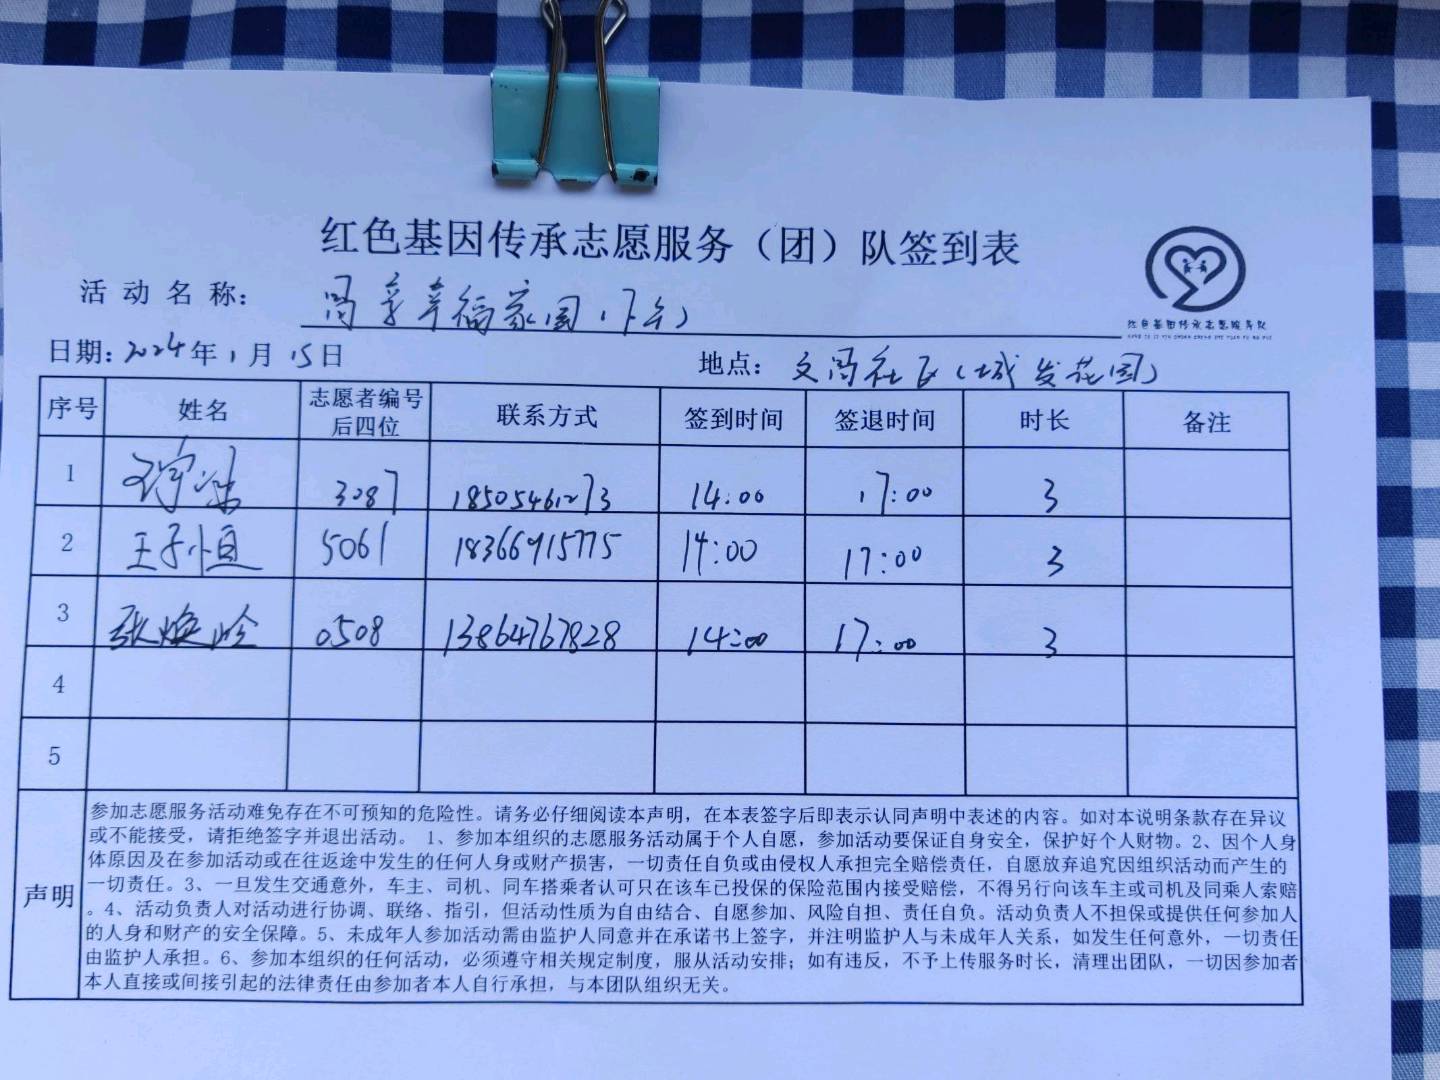 红色基因传承志愿服务（团）队签到表
活动名称: 幸福家园(下午)
红色基因传承志愿服务队
日期: 2024年1月15日 地点: 文昌社区(城发花园)
序号 姓名 志愿者编号后四位 联系方式 签到时间 签退时间 时长 备注
1 3087 18505461273 14:00 17:00 3
2 王子恒 5061 18366915775 14:00 17:00 3
3 张焕玲 0508 13864767828 14:00 17:00 3
4
5
声明
参加志愿服务活动难免存在不可预知的危险性。请务必仔细阅读本声明，在本表签字后即表示认同声明中表述的内容。如对本说明条款存在异议
或不能接受，请拒绝签字并退出活动。 1、参加本组织的志愿服务活动属于个人自愿，参加活动要保证自身安全，保护好个人财物。2、因个人身
体原因及在参加活动或在往返途中发生的任何人身或财产损害，一切责任自负或由侵权人承担完全赔偿责任，自愿放弃追究因组织活动而产生的
一切责任。3、一旦发生交通意外，车主、司机、同车搭乘者认可只在该车已投保的保险范围内接受赔偿，不得另行向该车主或司机及同乘人索赔
。4、活动负责人对活动进行协调、联络、指引，但活动性质为自由结合、自愿参加、风险自担、责任自负。活动负责人不担保或提供任何参加人
的人身和财产的安全保障。5、未成年人参加活动需由监护人同意并在承诺书上签字，并注明监护人与未成年人关系，如发生任何意外，一切责任
由监护人承担。6、参加本组织的任何活动，必须遵守相关规定制度，服从活动安排；如有违反，不予上传服务时长，清理出团队，一切因参加者
本人直接或间接引起的法律责任由参加者本人自行承担，与本团队组织无关。